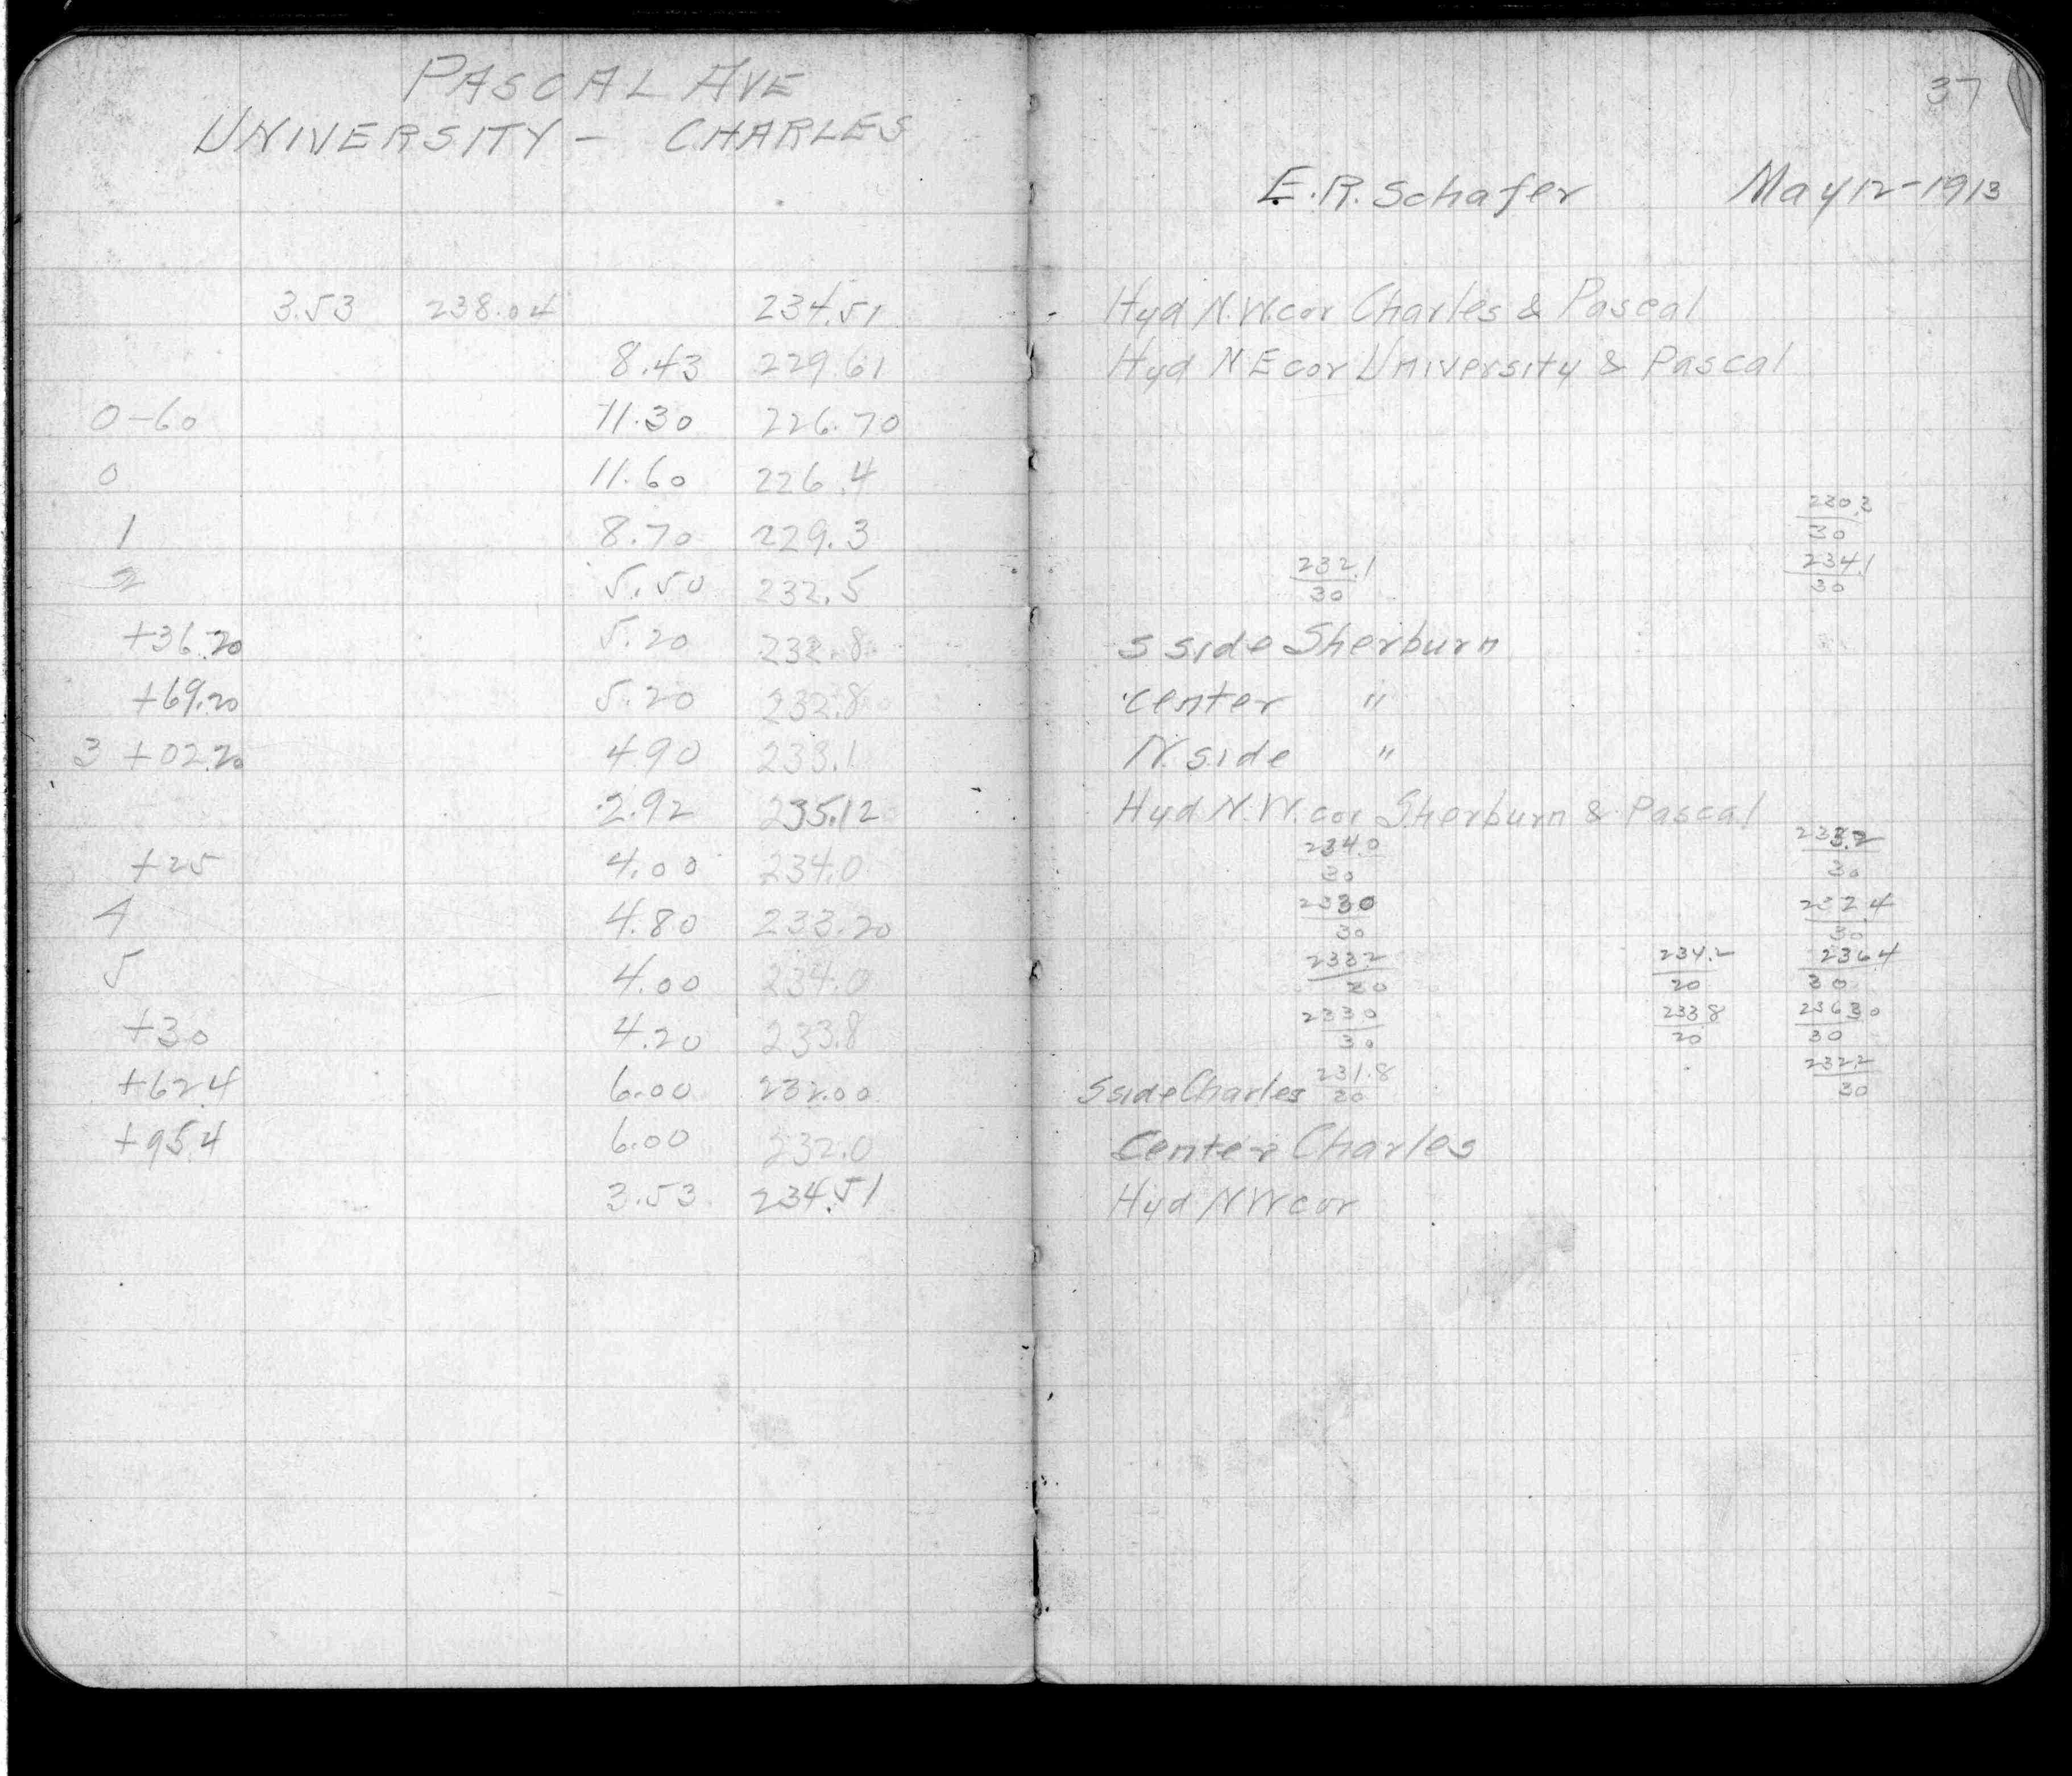 PASCAL AVE
UNIVERSITY - CHARLES
3.53 238.04 234.51
8.43 229.61
0-60 11.30 226.70
0 11.60 226.4
1 8.70 229.3
2 5.50 232.5
+36.20 5.20 232.8
+69.20 5.20 232.8
3 +02.20 4.90 233.1
2.92 235.12
+25 4.00 234.0
4 4.80 233.20
5 4.00 234.0
+30 4.20 233.8
+62.4 6.00 232.00
+95.4 6.00 232.0
3.53 234.51
37
E.R. Schafer May 12-1913
Hyd N.W cor Charles & Pascal
Hyd N E cor University & Pascal
230.3
30
232.1 234.1
30 30
S side Sherburn
center "
N. side "
Hyd N.W. cor Sherburn & Pascal
234.0 233.2
30 30
2330 232.4
30 30
2332 234.2 236.4
20 20 30
2330 2338 23630
30 20 30
231.8 2322
S side Charles 30 30
Center Charles
Hyd N W cor